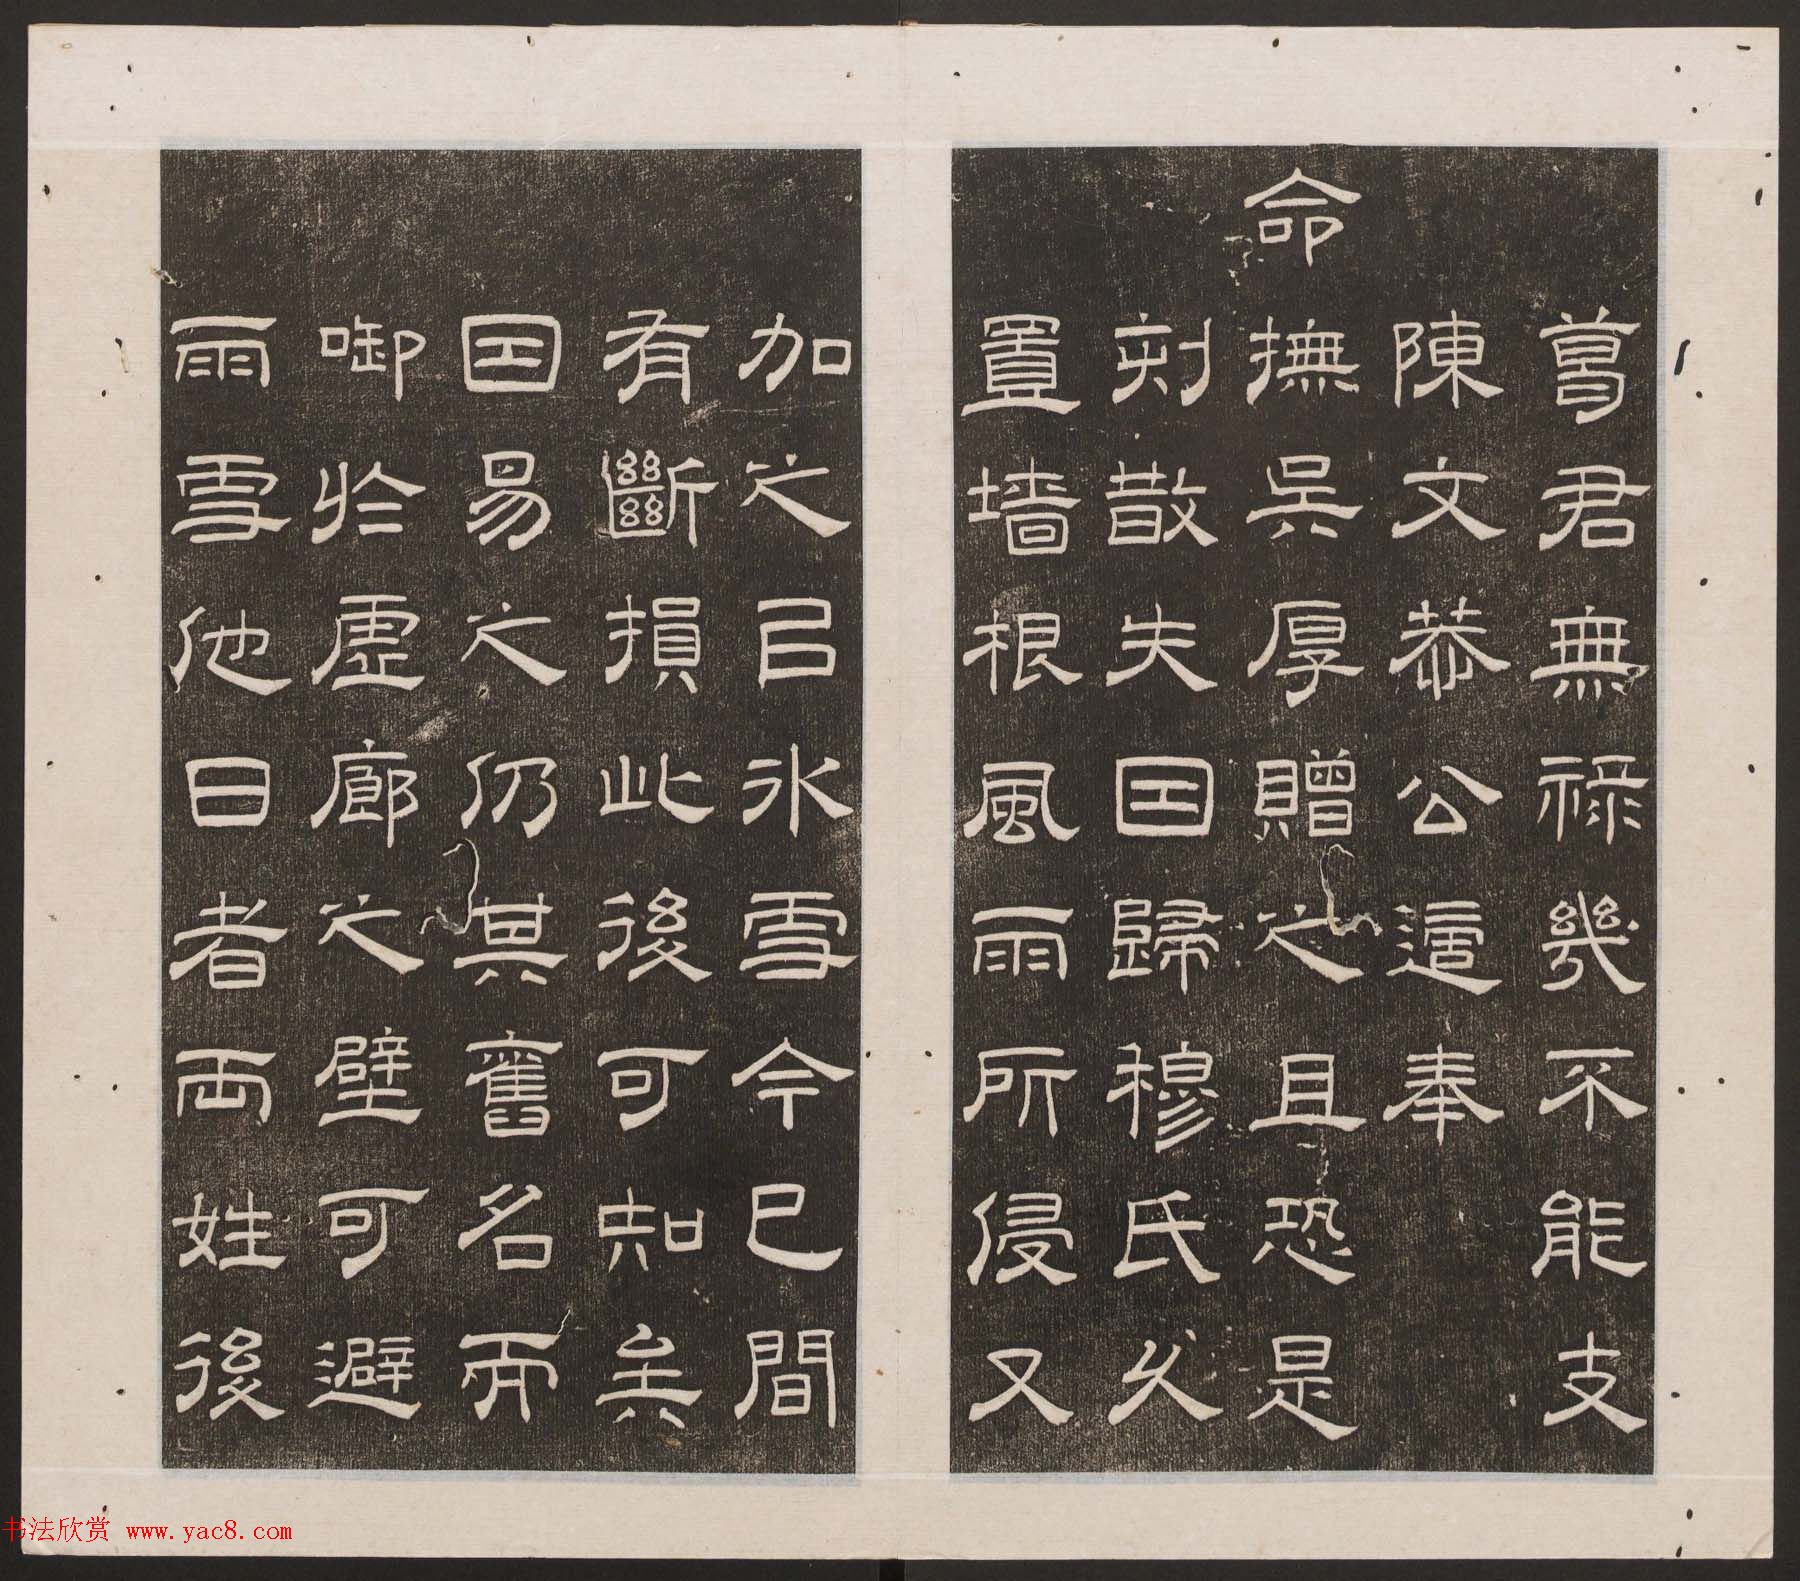 葛君無祿幾不能支
陳文恭公適奉
命撫吳厚贈之且恐是
刻散失因歸穆氏久
置墻根風雨所侵又
加之㠯氷雪今已間
有斷損此後可知矣
因易之仍其舊名而
啣於虛廊之壁可避
雨雪他日者両姓後
书法欣赏 www.yac8.com